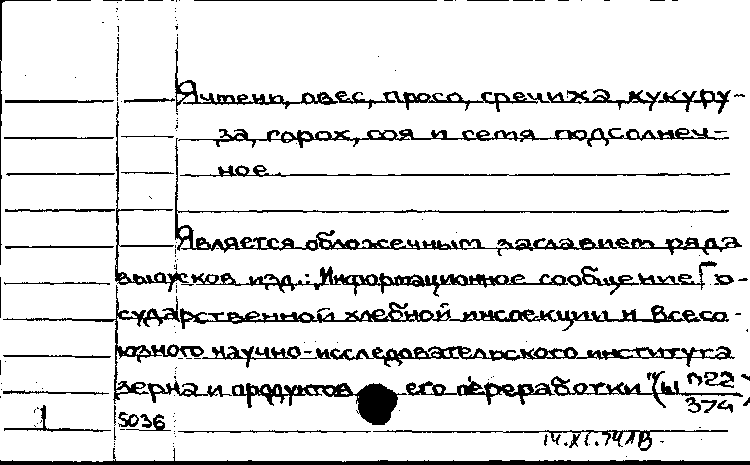 Ячмень, овес, просо, гречиха, кукуру-
за, горох, соя и семя подсолнеч-
ное.
Является обложечным заглавием ряда
выпусков изд.: „Информационное сообщение Го-
сударственной хлебной инспекции и Всесо-
юзного научно-исследовательского института
зерна и продуктов его переработки" (Ы П22/374)
1 5036
14.XI.74 ЛВ.